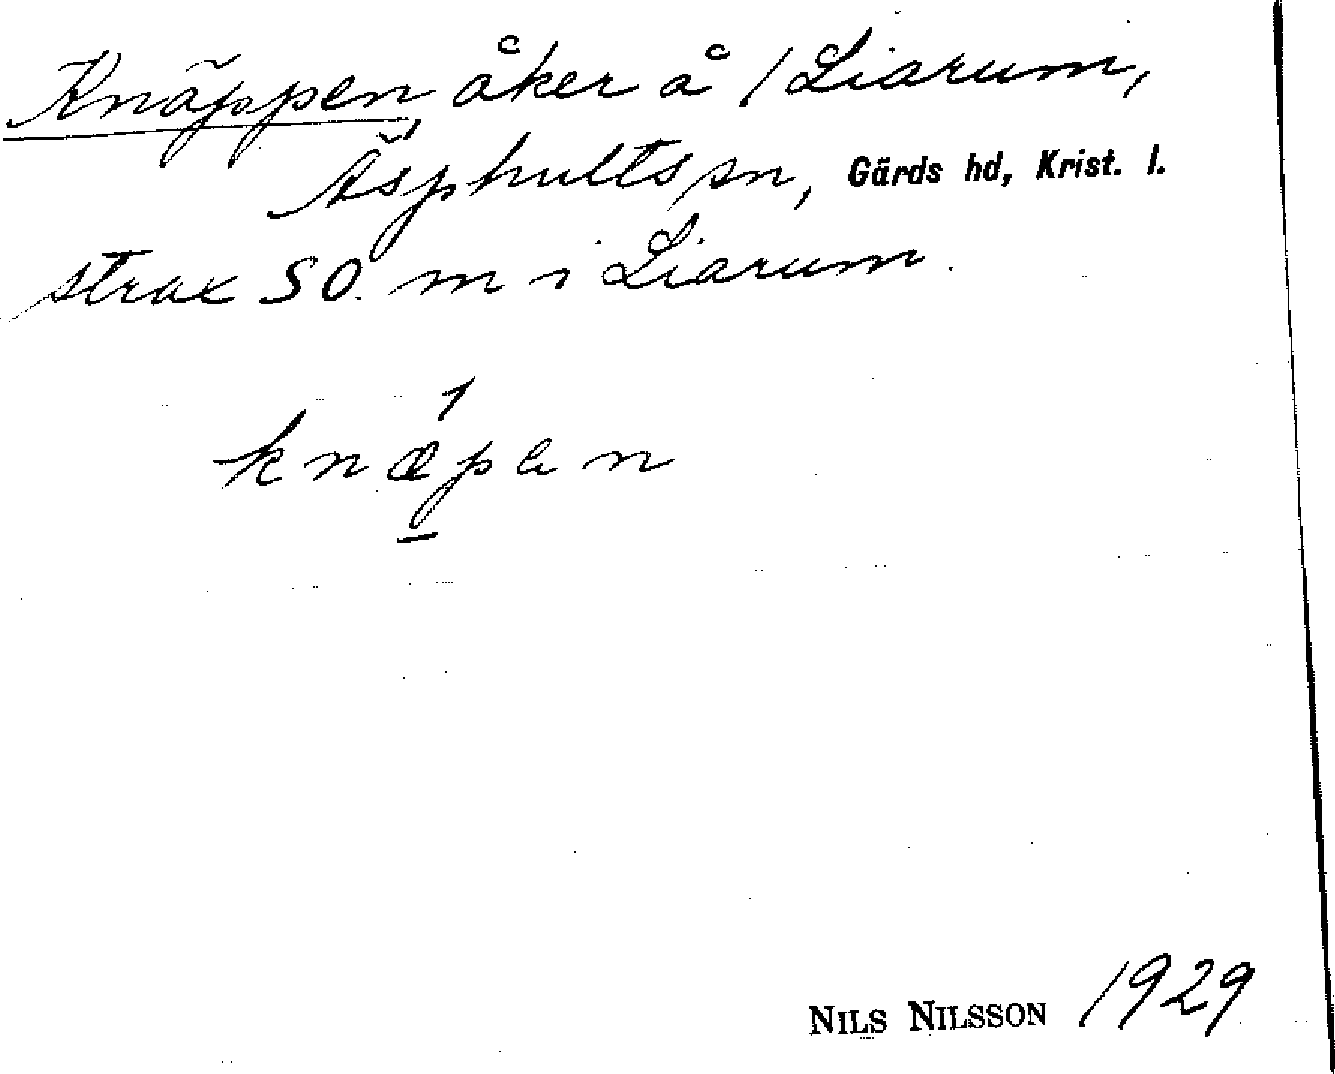 Knäppen, åker å 1 Liarum,
Äsphults sn, Gärds hd, Krist. l.
strax SO. m i Liarum.
knǽ̠pen
NILS NILSSON 1929